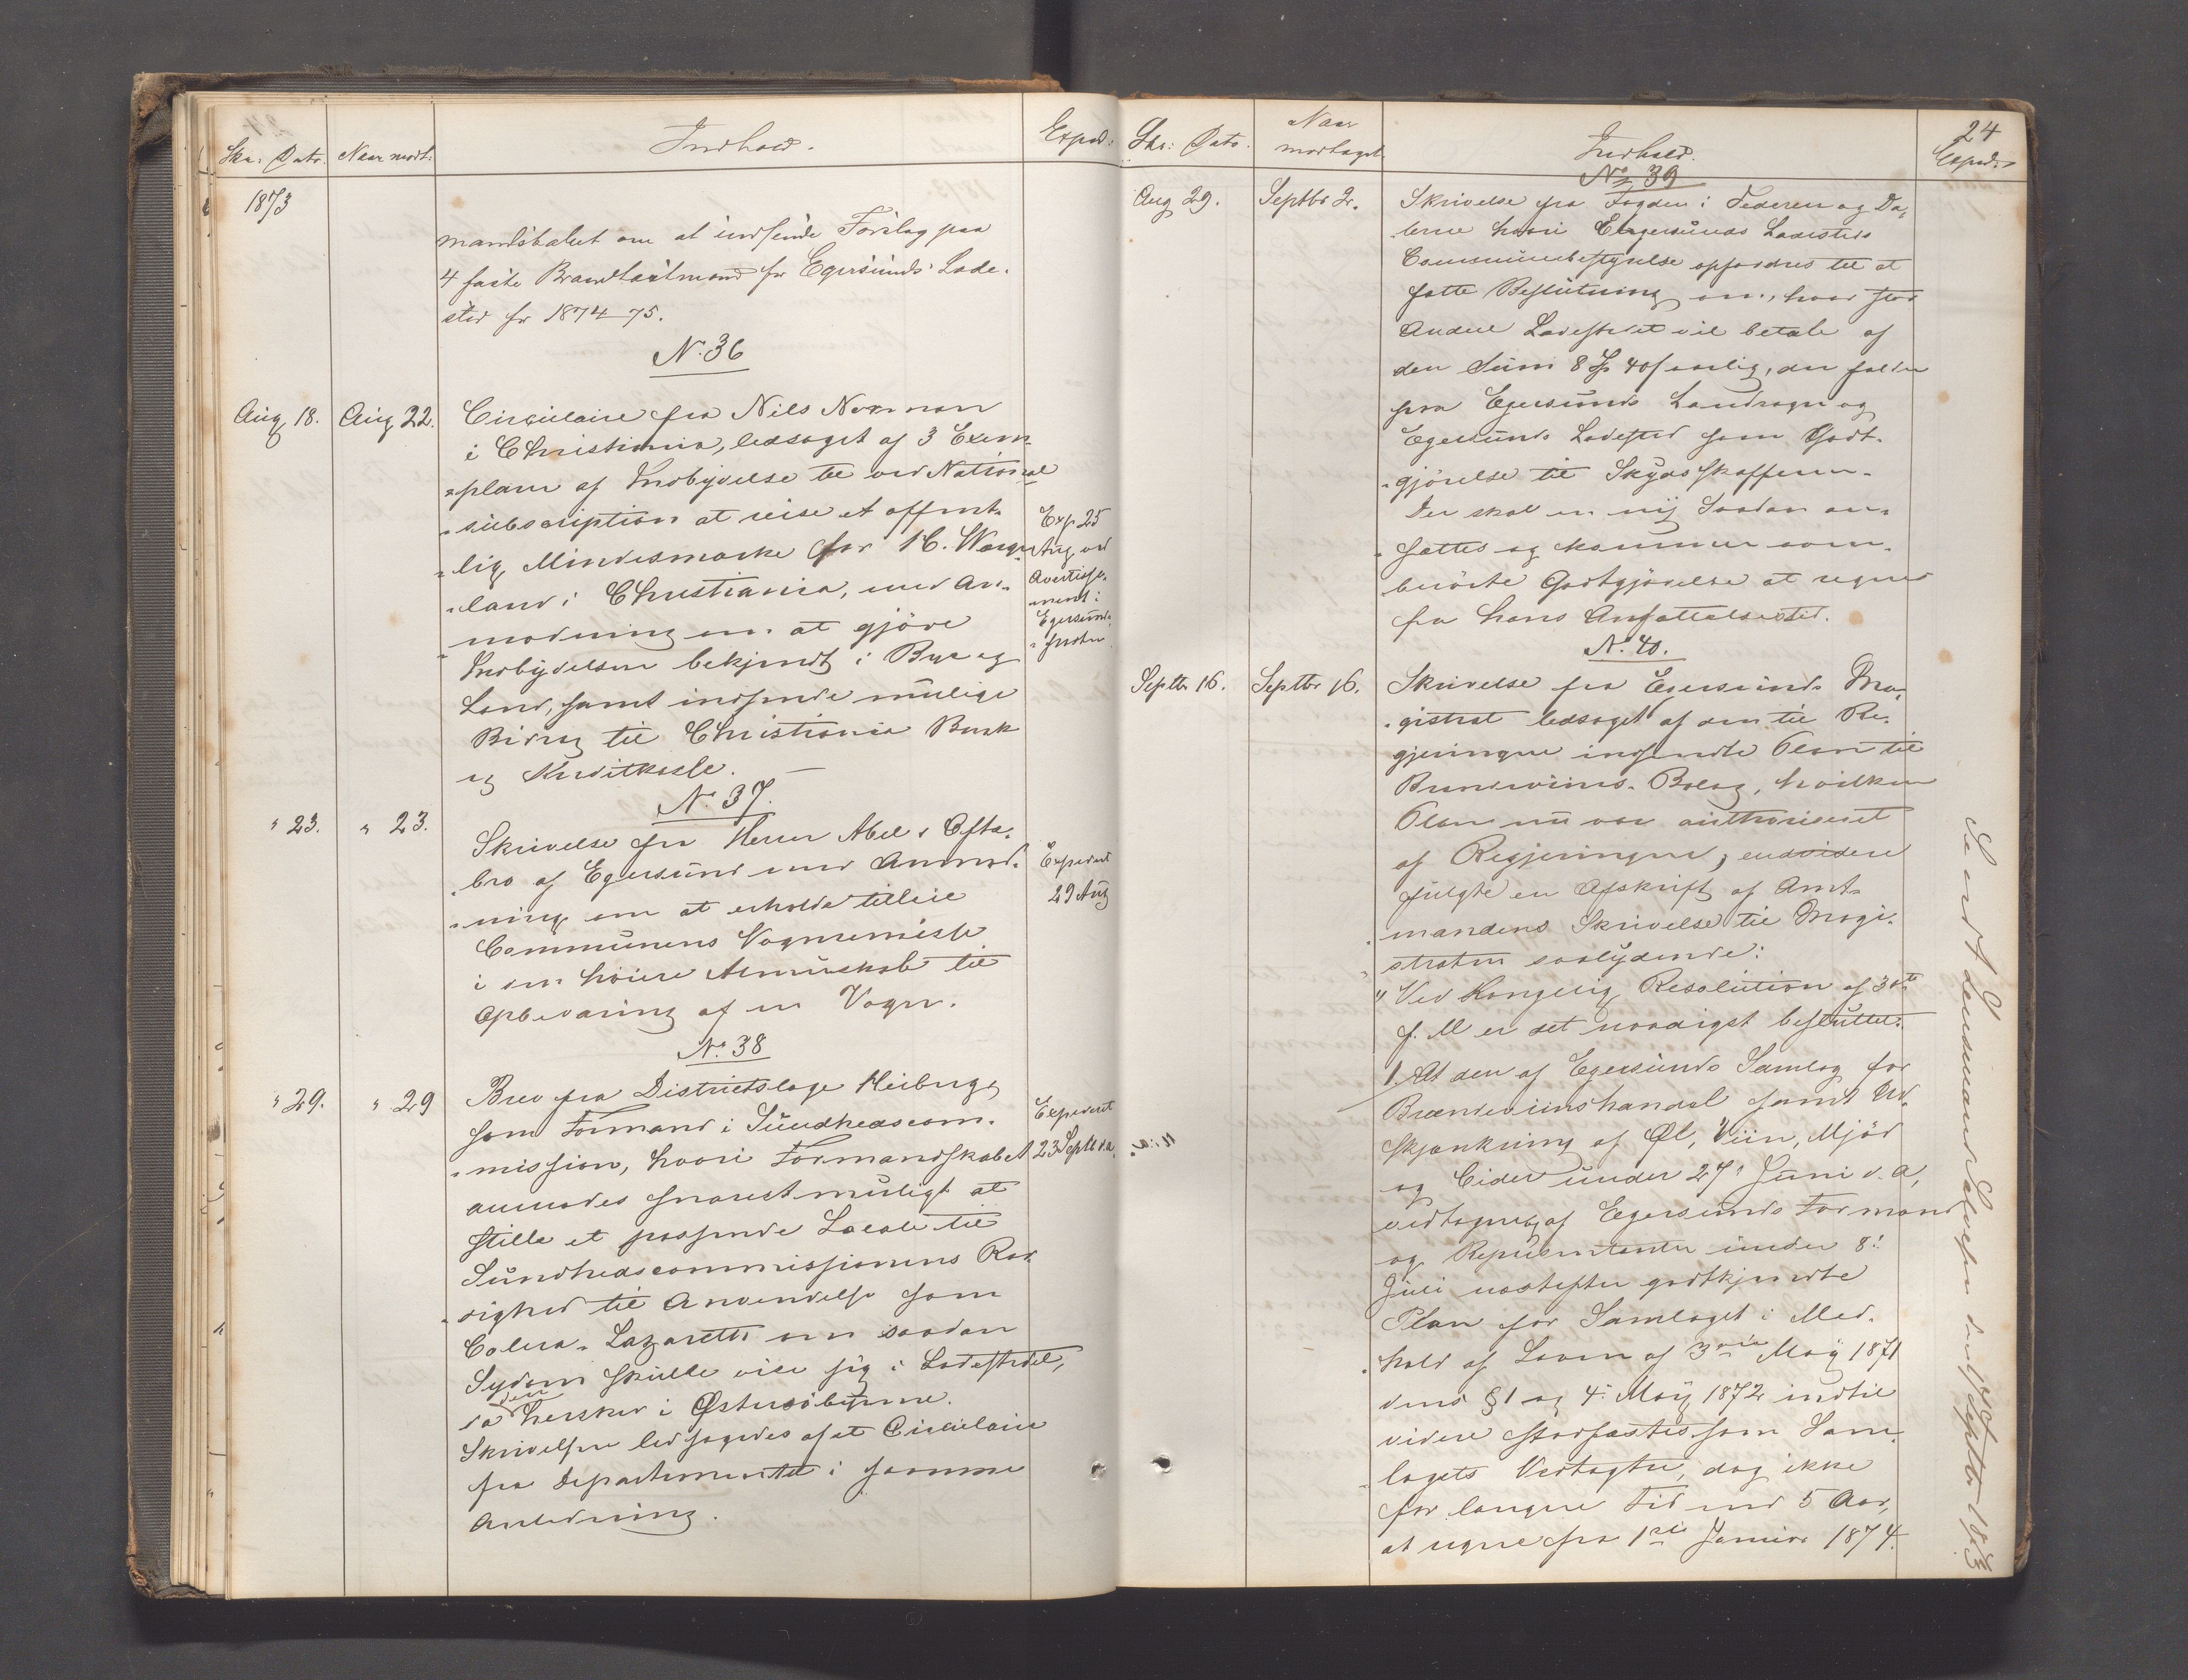 Skr: Dato. Naar modt: Indhold. Exped:
1873
mandskabet om at indsende Forslag paa
4 faste Brandtaxtmænd for Egersunds Lade-
sted for 1874-75.
N. 36
Aug 18. Aug 22. Circulaire fra Nils
i Christiania, ledsaget af 3 Exem-
plarer af Indbydelse til ved National
subscription at reise et offent-
lig Mindesmærke for H. Werge-
land i Christiania, med An-
modning om at gjöre
Indbydelsen bekjendt i By og
Land, samt indsende mulige
Bidrag til Christiania Bank
og Kreditkasse.
Exp 25
Aug ved
Avertisse-
ment i
Egersunds-
posten
N. 37.
" 23. " 23. Skrivelse fra Herrer Abel &
bro af Egersund med Anmod-
ning om at erholde tilleie
Communens Vognremisse
i den höiere Almueskole til
Opbevaring af en Vogn.
Expederet
29 Aug
N. 38
" 29. " 29 Brev fra Districtslæge Heiberg,
som Formand i Sundhedscom-
mission, hvori Formandskabet
anmodes snarest muligt at
stille et passende Locale til
Sundhedscommissionens Raa-
dighed til Anvendelse som
Colera-Lazareth om saadan
Sydom skulle vise sig i Ladestedet,
da den hersker i Östersöbyerne.
Skrivelsen ledsagedes af et Circulaire
fra Departementet i samme
Anledning.
Expederet
23 Septb d.a.
24
Skr: Dato. Naar modtaget Indhold. Exped:
No 39
Aug 29. Septbr 2. Skrivelse fra Fogden i Jederen og Da-
lerne hvori Egersunds Ladesteds
Communebestyrelse opfordres til at
fatte Beslutning om, hvor stor
Andel Ladestedet vil betale af
den Sum 8 Sp 40 s aarlig, der falder
paa Egersunds Landsogn og
Egersunds Ladested som Godt-
gjörelse til Skydsskafferen.
Der skal en ny Saadan an-
sættes og kommer oven-
berörte Godtgjörelse at regnes
fra hans Ansættelsestid.
N. 40.
Septbr 16. Septbr 16. Skrivelse fra Egersunds Ma-
gistrat ledsaget af den til Re-
gjeringen indsendte Plan til
Brændeviins-Bolag, hvilken
Plan nu var authoriseret
af Regjeringen, endvidere
fulgte en Afskrift af Amt-
mandens Skrivelse til Magi-
straten saalydende:
"Ved Kongelig Resolution af 30te
f. M er det naadigst besluttet:
1. At den af Egersunds Samlag for
Brændeviinshandel samt Ud-
skjænkning af Öl, Viin, Mjöd
og Cider under 27' Juni d. A,
vedtagne, af Egersunds Formænd
og Repræsentanter under 8'
Juli næstefter godtkjendte
Plan for Samlaget i Med-
hold af Loven af 3die Maj 1871
dens § 1 og 4' Maj 1872 indtil
videre stadfæstes som Sam-
lagets Vedtægter, dog ikke
for længere Tid end 5 Aar,
at regne fra 1ste Januar 1874.
Sendt Lensmand Salvesen Septbr 1873